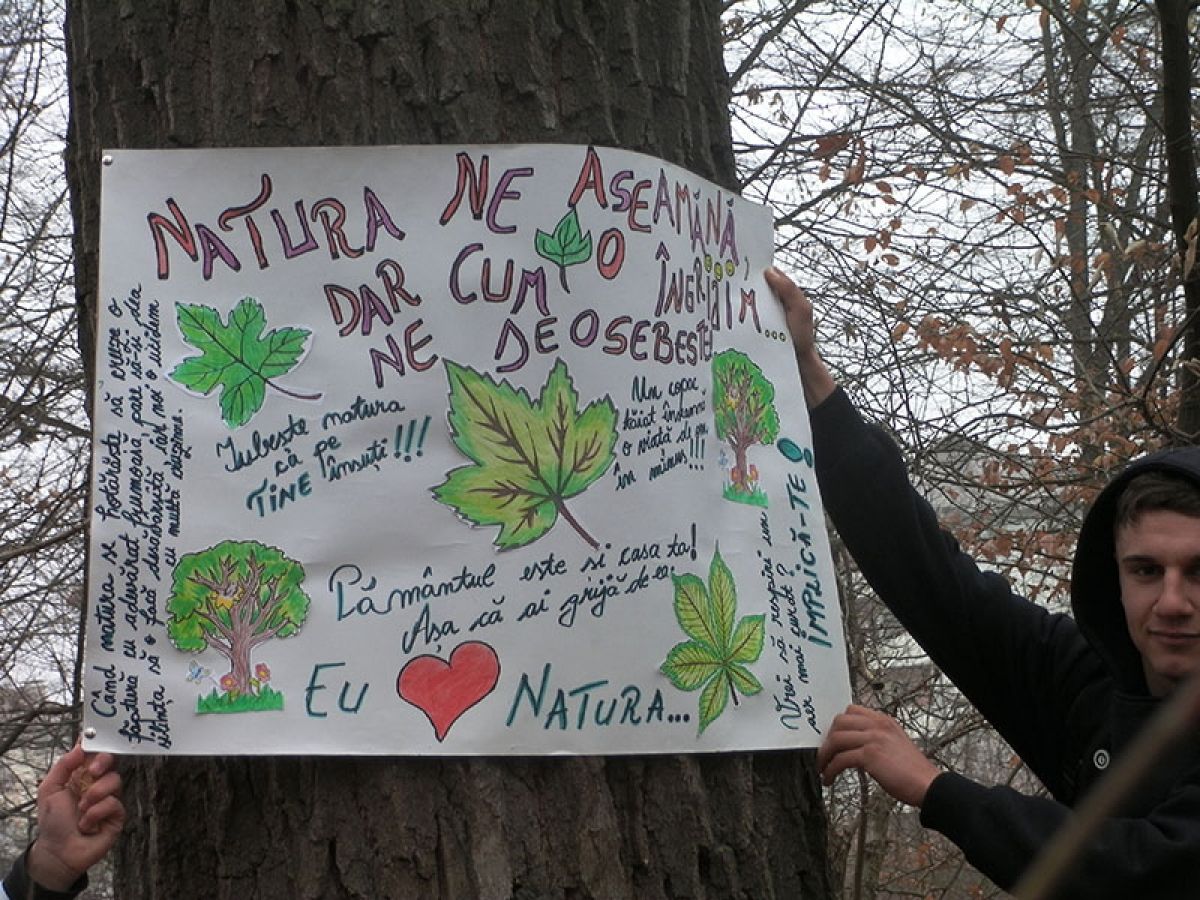 NATURA NE ASEAMĂNĂ,
DAR CUM O ÎNGRIJIM...
NE DEOSEBEȘTE!
Când natura se hotărăște să creeze o
făptură cu adevărat frumoasă, pare să-și dea
silința să o facă desăvârșită iar noi o ucidem
cu multă cruzime.
Iubește natura
că pe
TINE însuți!!!
Un copac
tăiat
o viată de om
în minus!!!
Pământul este si casa ta!
Așa că ai grijă de ea.
EU NATURA...
Vrei să respiri un
aer mai curat?
IMPLICĂ-TE!